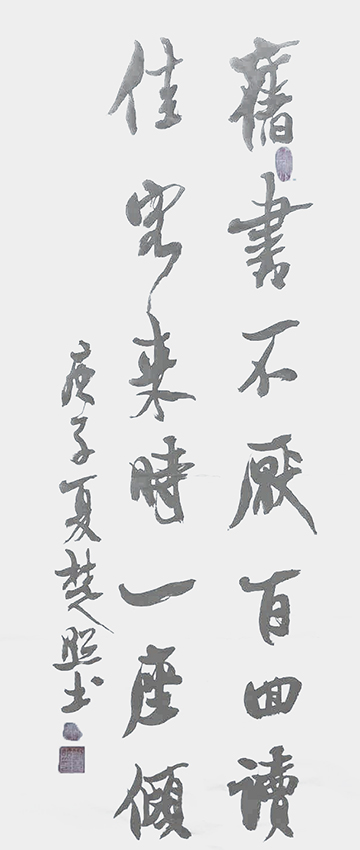 舊書不厭百回讀
佳客來時一座傾
庚子夏楚照書